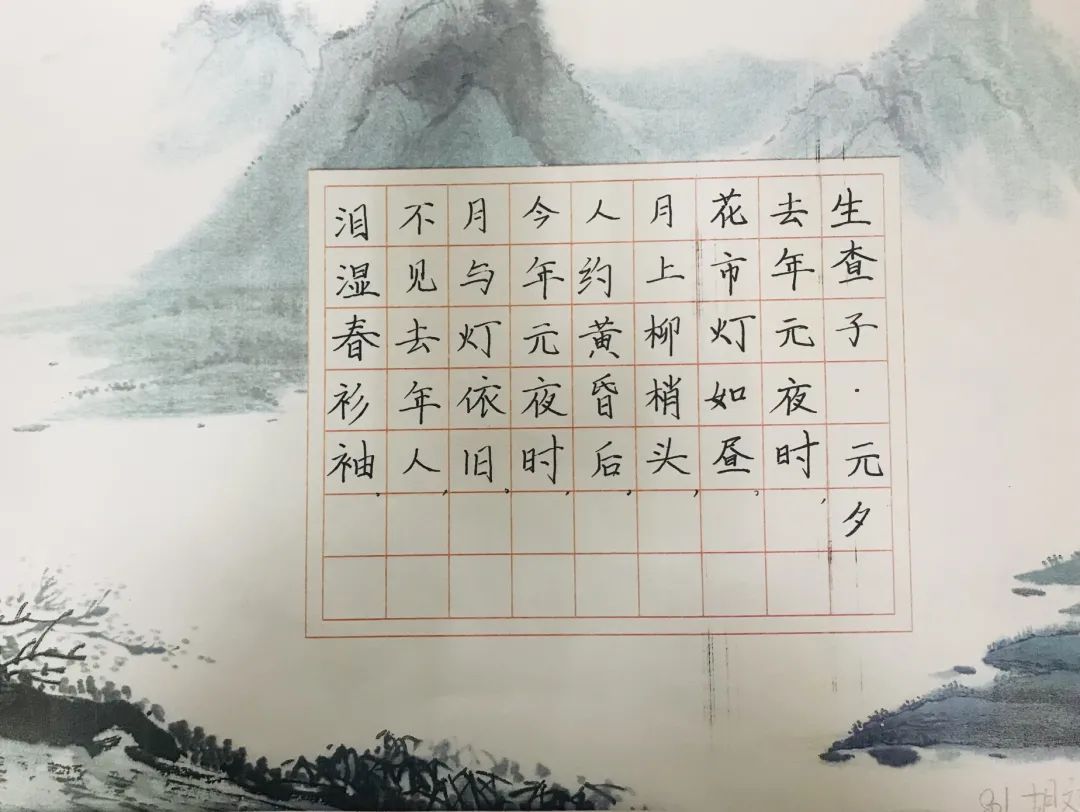 生查子·元夕
去年元夜时，
花市灯如昼，
月上柳梢头，
人约黄昏后，
今年元夜时，
月与灯依旧，
不见去年人，
泪湿春衫袖，